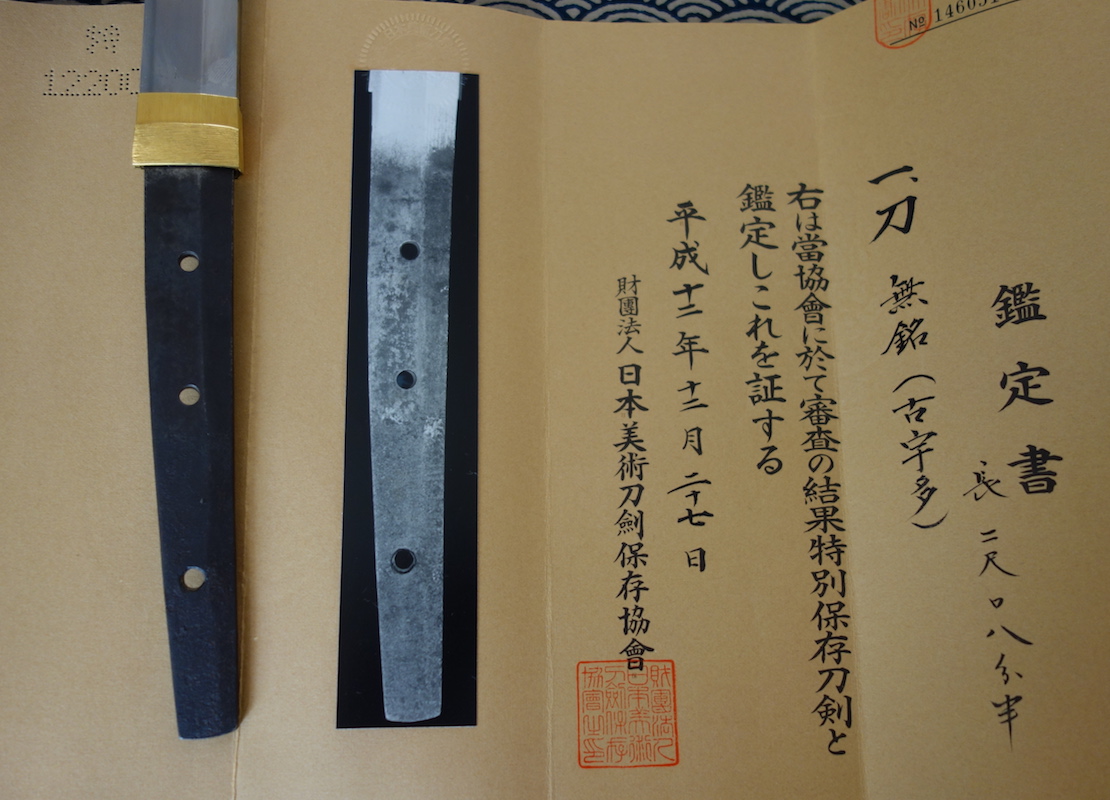 № 14605
鑑定書
長 二尺〇八分半
一、刀 無銘（古宇多）
右は當協會に於て審査の結果特別保存刀剣と
鑑定しこれを証する
平成十二年十二月二十七日
財團法人 日本美術刀劍保存協會
財團法人
日本美術
刀劍保存
協會之印
12200